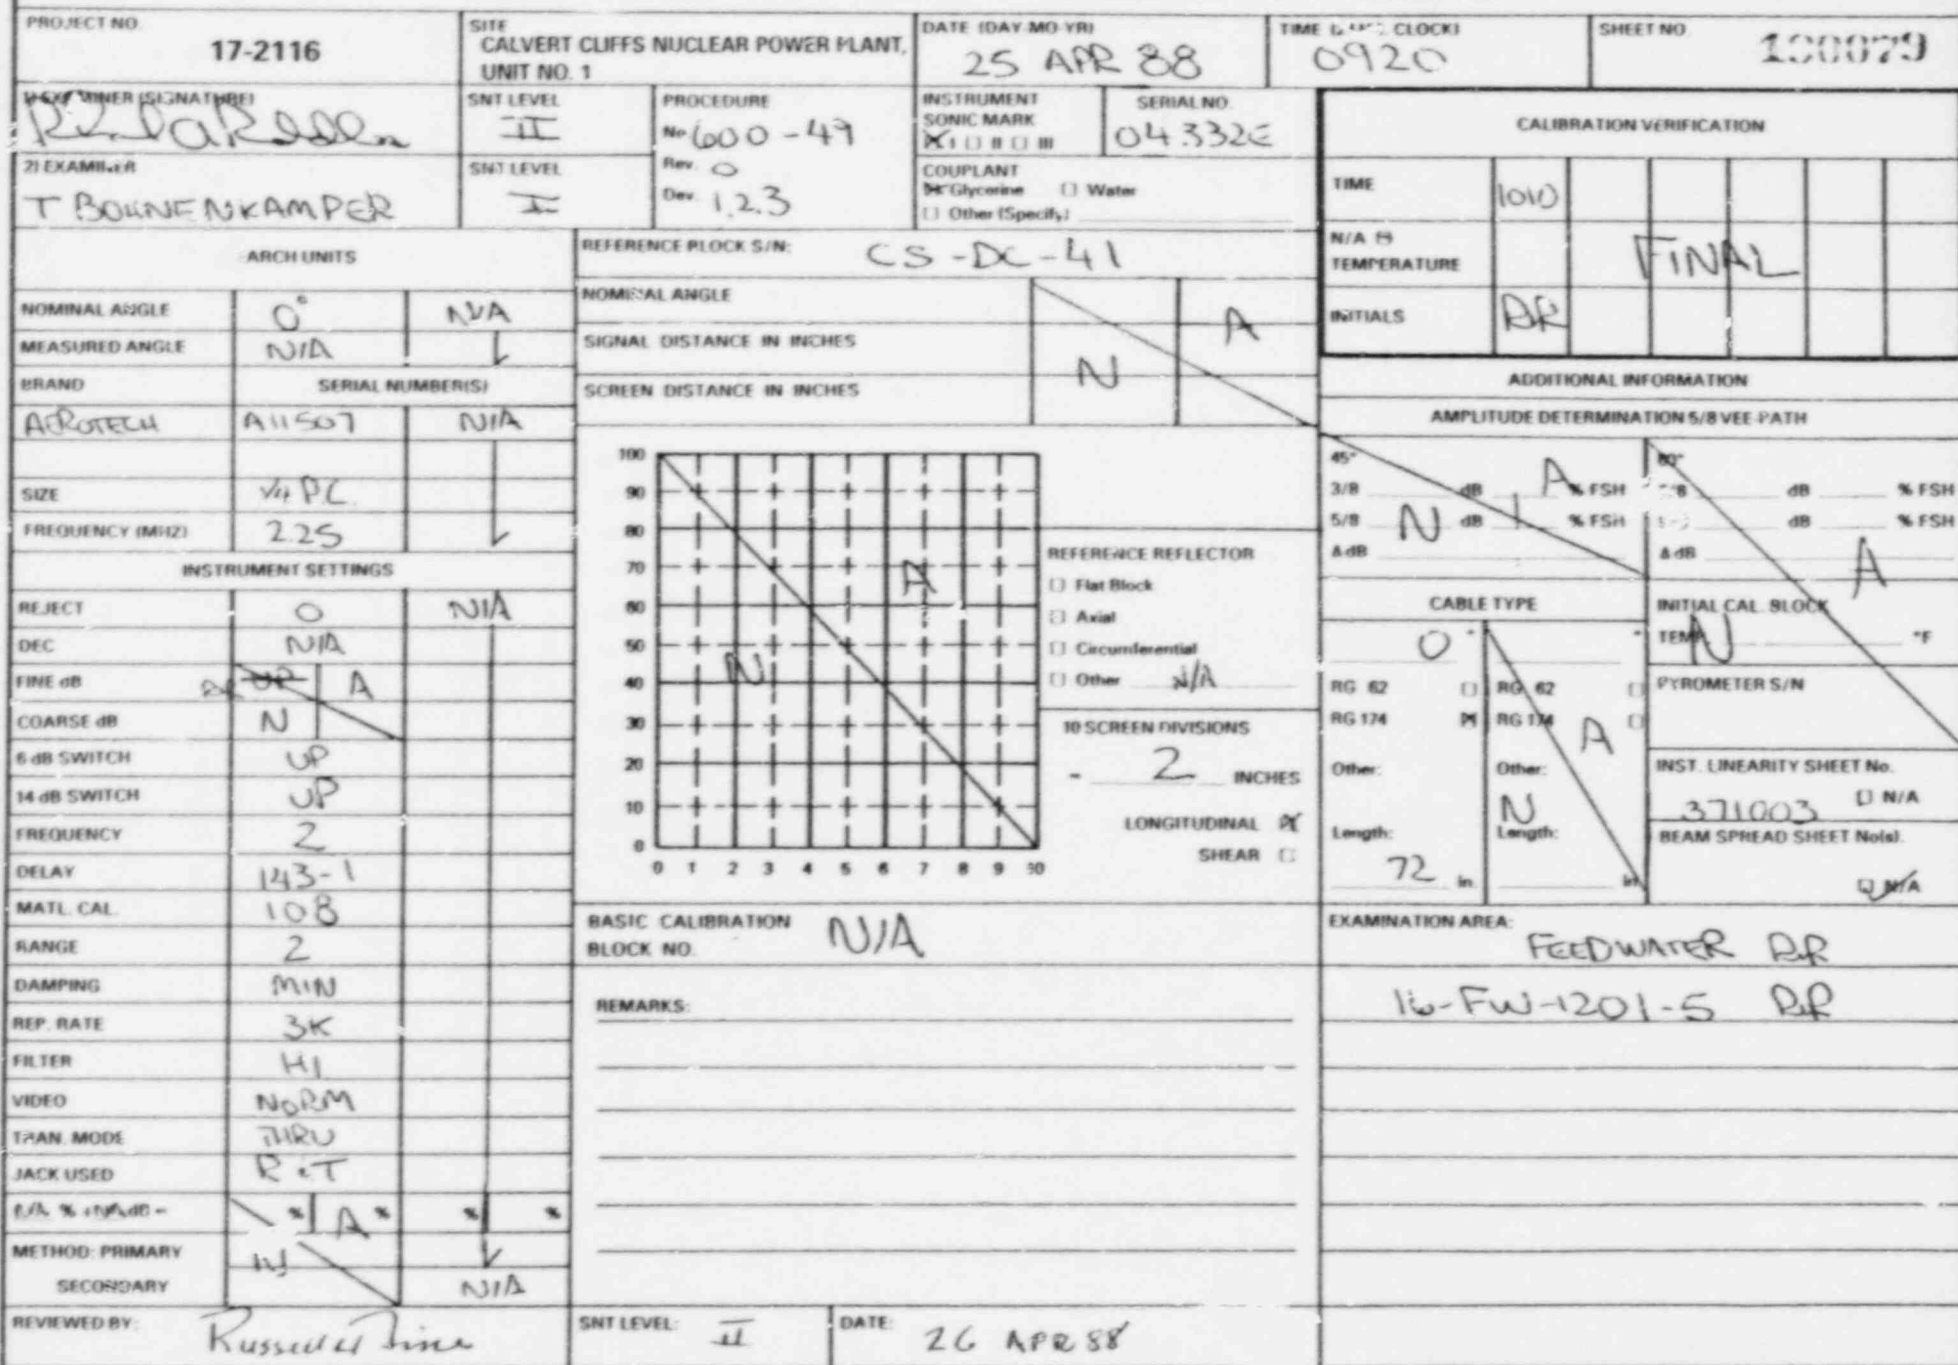 PROJECT NO.
17-2116
SITE
CALVERT CLIFFS NUCLEAR POWER PLANT,
UNIT NO. 1
DATE (DAY-MO-YR)
25 APR 88
TIME CLOCK)
0920
SHEET NO.
EXAMINER (SIGNATURE)
SNT LEVEL
II
PROCEDURE
No 600-49
Rev. 0
Dev. 1,2,3
INSTRUMENT
SONIC MARK
I II III
SERIAL NO.
04332E
2) EXAMINER
T BOHNENKAMPER
SNT LEVEL
I
COUPLANT
Glycerine Water
Other (Specify)
CALIBRATION VERIFICATION
TIME 1010
N/A
TEMPERATURE
FINAL
INITIALS RR
ARCH UNITS
NOMINAL ANGLE 0° N/A
MEASURED ANGLE N/A
BRAND SERIAL NUMBER(S)
AEROTECH A11507 N/A
SIZE 1/4 PC
FREQUENCY (MHZ) 2.25
INSTRUMENT SETTINGS
REJECT 0 N/A
DEC N/A
FINE dB UP A
COARSE dB N
6 dB SWITCH UP
14 dB SWITCH UP
FREQUENCY 2
DELAY 143-1
MATL. CAL. 108
RANGE 2
DAMPING MIN
REP. RATE 3K
FILTER HI
VIDEO NORM
TRAN. MODE THRU
JACK USED R&T
N/A % dB - % A % % %
METHOD: PRIMARY N
SECONDARY N/A
REFERENCE BLOCK S/N: CS-DC-41
NOMINAL ANGLE
SIGNAL DISTANCE IN INCHES
SCREEN DISTANCE IN INCHES
N A
100
90
80
70
60
50
40
30
20
10
0
0 1 2 3 4 5 6 7 8 9 10
N A
REFERENCE REFLECTOR
Flat Block
Axial
Circumferential
Other N/A
10 SCREEN DIVISIONS
- 2 INCHES
LONGITUDINAL
SHEAR
BASIC CALIBRATION
BLOCK NO. N/A
REMARKS:
ADDITIONAL INFORMATION
AMPLITUDE DETERMINATION 5/8 VEE-PATH
45°
3/8 dB A % FSH
5/8 N dB % FSH
Δ dB
60°
dB % FSH
dB % FSH
Δ dB
A
CABLE TYPE
0°
RG 62
RG 174
Other:
Length:
72 in.
°
RG 62
RG 174
A
Other:
N
Length:
in.
INITIAL CAL. BLOCK
TEMP. N °F
PYROMETER S/N
INST. LINEARITY SHEET No.
371003 N/A
BEAM SPREAD SHEET No(s).
N/A
EXAMINATION AREA:
FEEDWATER RR
16-FW-1201-5 RR
REVIEWED BY:
SNT LEVEL: II
DATE: 26 APR 88